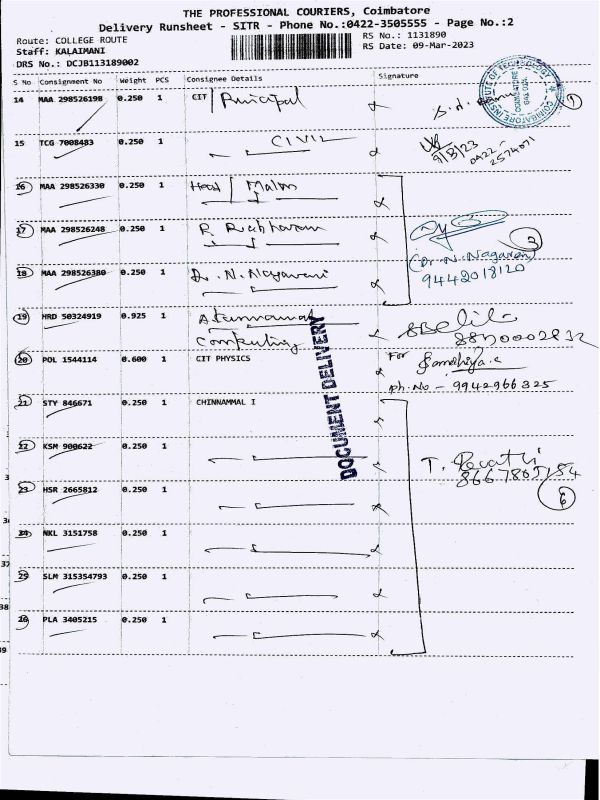 THE PROFESSIONAL COURIERS, Coimbatore
Delivery Runsheet - SITR - Phone No.:0422-3505555 - Page No.:2
Route: COLLEGE ROUTE
RS No.: 1131890
Staff: KALAIMANI
RS Date: 09-Mar-2023
DRS No.: DCJB113189002
S No Consignment No Weight PCS Consignee Details Signature
14 MAA 298526198 0.250 1 CIT Principal
COIMBATORE INSTITUTE OF TECHNOLOGY COIMBATORE 641 014
1
15 TCG 7008483 0.250 1 CIVIL
9/3/23
0422-2574071
16 MAA 298526330 0.250 1 Head
17 MAA 298526248 0.250 1 R.
3
18 MAA 298526380 0.250 1 Dr. N. Nagaveni
(Dr. N. Nagaveni)
9442018120
19 HRD 50324919 0.925 1
Computing
8870002832
20 POL 1544114 0.600 1 CIT PHYSICS
For Sandhiya.c
ph.No - 9942966325
21 STY 846671 0.250 1 CHINNAMMAL I
22 KSM 900622 0.250 1
T. Revathi
8667805154
23 HSR 2665812 0.250 1
6
24 NKL 3151758 0.250 1
25 SLM 315354793 0.250 1
26 PLA 3405215 0.250 1
DOCUMENT DELIVERY